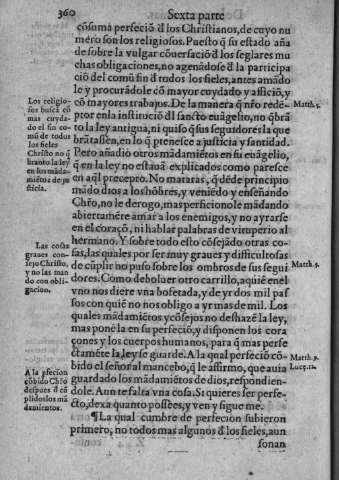 360
Sexta parte
cõsuma perfeciõ đ los Christianos, de cuyo nu
mero son los religiosos. Puesto q̃ su estado aña
de sobre la vulgar cõuersaciõ đ los seglares mu
chas obligaciones, no agenãdose đ la participa
ciõ del comũ fin đ todos los fieles, antes amãdo
le y procurãdole cõ mayor cuydado y afficiõ, y
cõ mayores trabajos. De la manera q̃ nr̃o redẽ-
ptor en la instituciõ đl sancto euãgelio, no q̃brã
to la ley antigua, ni quiso q̃ sus seguidores la que
brãtassen, en lo q̃ pertenesce a justicia y santidad.
Pero añadiõ otros mãdamiẽtos en su euãgelio,
q̃ en la ley no estauã explicados como paresce
en aq̃l precepto. No mataras, q̃ dẽde principio
mãdo dios a los hõbres, y veniẽdo y enseñando
Chr̃o, no le derogo, mas perficionole mãdando
abiertamẽte amar a los enemigos, y no ayrarse
en el coraçõ, ni hablar palabras de vituperio al
hermano. Y sobre todo esto cõsejãdo otras co-
sas, las quales por ser muy graues y difficultosas
de cũplir no puso sobre los ombros de sus segui
dores. Como deboluer otro carrillo, aquiẽ enel
vno nos diere vna bofetada, y de yr dos mil pas
sos con quiẽ no nos obligo a yr mas de mil. Los
quales mãdamiẽtos y cõsejos no deshazẽ la ley,
mas ponẽ la en su perfeciõ, y disponen los cora
çones y los cuerpos humanos, para q̃ mas perfe
ctamẽte la ley se guarde. A la qual perfeciõ cõ-
bido el señor al mancebo, q̃ le affirmo, que auia
guardado los mãdamiẽtos de dios, respondien-
dole. Aun te falta vna cosa. Si quieres ser perfe-
cto, dexa quanto possees, y ven y sigue me.
¶ La qual cumbre de perfecion subieron
primero, no todos mas algunos đ los fieles, aun
sonan
Los religio-
sos buscã cõ
mas cuyda-
do el fin co-
mũ de todos
los fieles
Christo no q̃
branto la ley
en los mãda-
miẽtos de ju
sticia.
Las cosas
graues con-
sejo Christo,
y no las man
do con obli-
gacion.
A la pfecion
cõbido Chr̃o
despues đ cũ
plidos los mã
damientos.
Matth. 5.
Matth. 5.
Matth. 9.
Luc. 12.